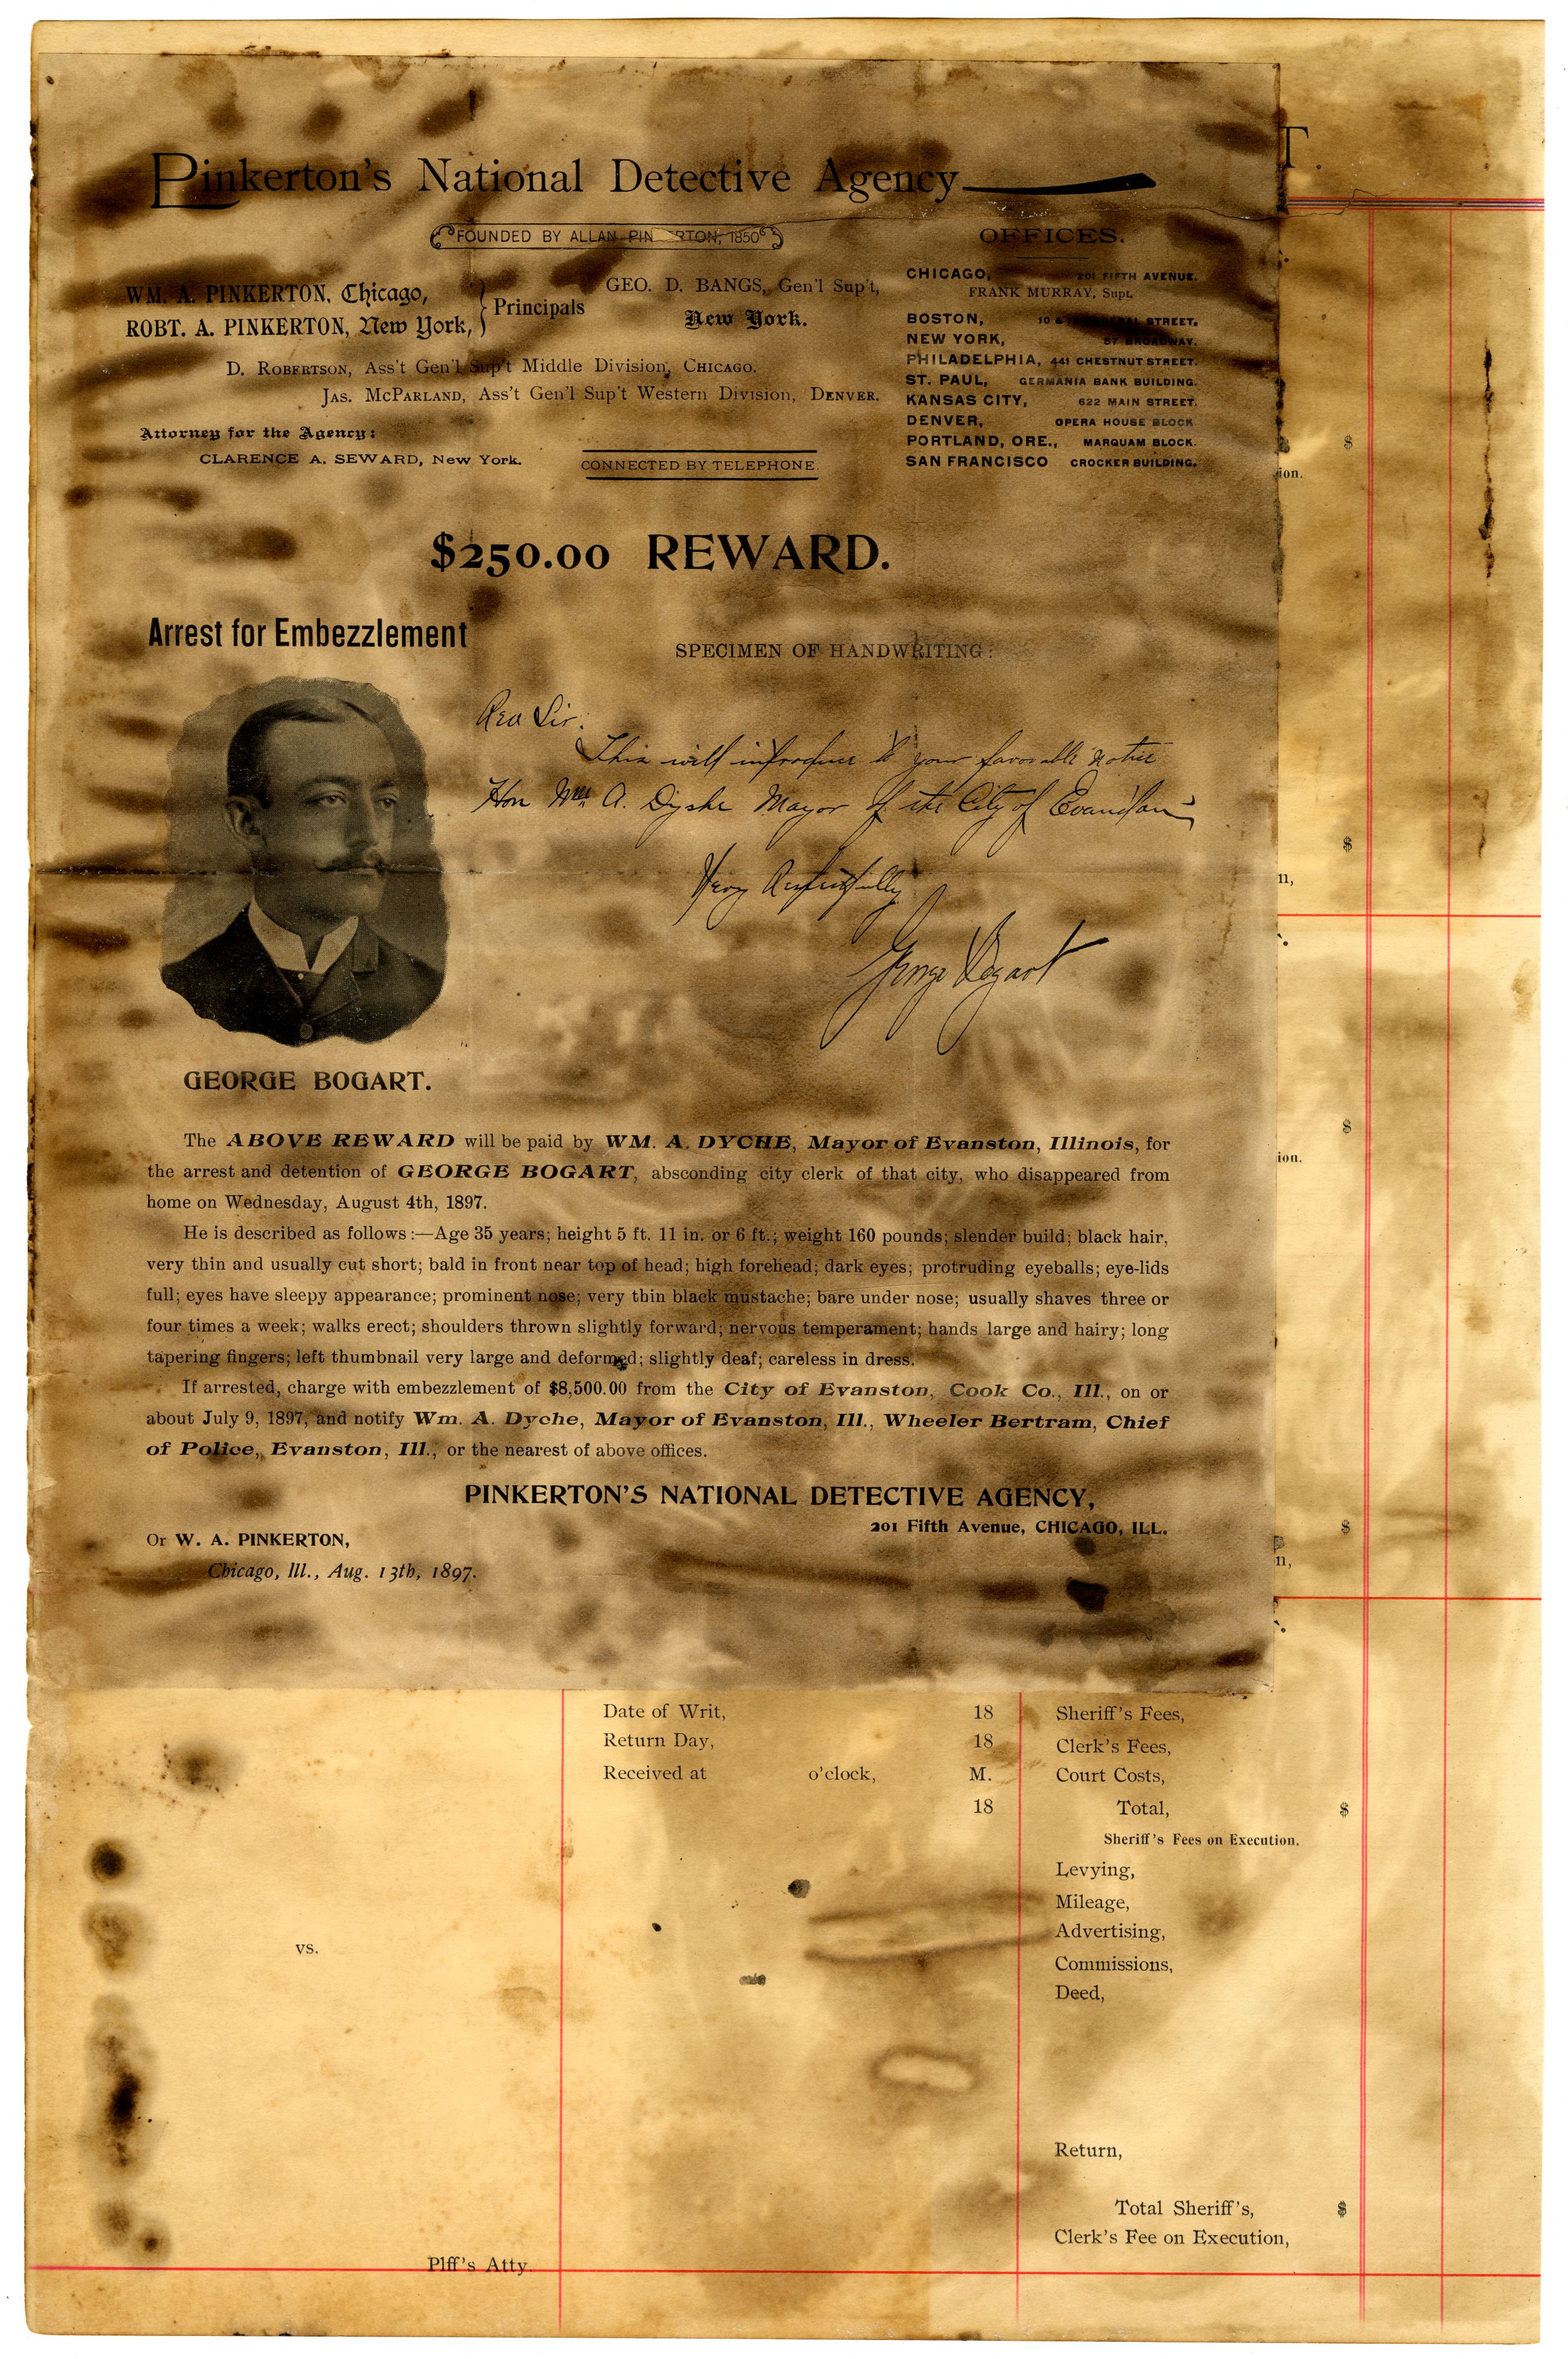 Pinkerton's National Detective Agency
FOUNDED BY ALLAN PIN RTON, 1850
OFFICES.
WM. A. PINKERTON, Chicago,
ROBT. A. PINKERTON, New York,
Principals
GEO. D. BANGS, Gen'l Sup't,
New York.
D. ROBERTSON, Ass't Gen'l Sup't Middle Division, CHICAGO.
JAS. MCPARLAND, Ass't Gen'l Sup't Western Division, DENVER.
Attorney for the Agency:
CLARENCE A. SEWARD, New York.
CONNECTED BY TELEPHONE.
CHICAGO, 201 FIFTH AVENUE.
FRANK MURRAY, Supt.
BOSTON, 10 STREET.
NEW YORK, 57 BROADWAY.
PHILADELPHIA, 441 CHESTNUT STREET.
ST. PAUL, GERMANIA BANK BUILDING.
KANSAS CITY, 622 MAIN STREET.
DENVER, OPERA HOUSE BLOCK
PORTLAND, ORE., MARQUAM BLOCK.
SAN FRANCISCO CROCKER BUILDING.
$250.00 REWARD.
Arrest for Embezzlement
SPECIMEN OF HANDWRITING:
Sir.
This will introduce to your favorable notice
Hon Wm A. Dyche Mayor of the City of Evanston
Very Respectfully
George Bogart
GEORGE BOGART.
The ABOVE REWARD will be paid by WM. A. DYCHE, Mayor of Evanston, Illinois, for
the arrest and detention of GEORGE BOGART, absconding city clerk of that city, who disappeared from
home on Wednesday, August 4th, 1897.
He is described as follows:—Age 35 years; height 5 ft. 11 in. or 6 ft.; weight 160 pounds; slender build; black hair,
very thin and usually cut short; bald in front near top of head; high forehead; dark eyes; protruding eyeballs; eye-lids
full; eyes have sleepy appearance; prominent nose; very thin black mustache; bare under nose; usually shaves three or
four times a week; walks erect; shoulders thrown slightly forward; nervous temperament; hands large and hairy; long
tapering fingers; left thumbnail very large and deformed; slightly deaf; careless in dress.
If arrested, charge with embezzlement of $8,500.00 from the City of Evanston, Cook Co., Ill., on or
about July 9, 1897, and notify Wm. A. Dyche, Mayor of Evanston, Ill., Wheeler Bertram, Chief
of Police, Evanston, Ill., or the nearest of above offices.
PINKERTON'S NATIONAL DETECTIVE AGENCY,
201 Fifth Avenue, CHICAGO, ILL.
Or W. A. PINKERTON,
Chicago, Ill., Aug. 13th, 1897.
T.
$
ion.
$
n,
$
ion.
$
n,
Date of Writ, 18
Return Day, 18
Received at o'clock, M.
18
Sheriff's Fees,
Clerk's Fees,
Court Costs,
Total, $
Sheriff's Fees on Execution.
Levying,
Mileage,
Advertising,
Commissions,
Deed,
vs.
Return,
Total Sheriff's, $
Clerk's Fee on Execution,
Plff's Atty.